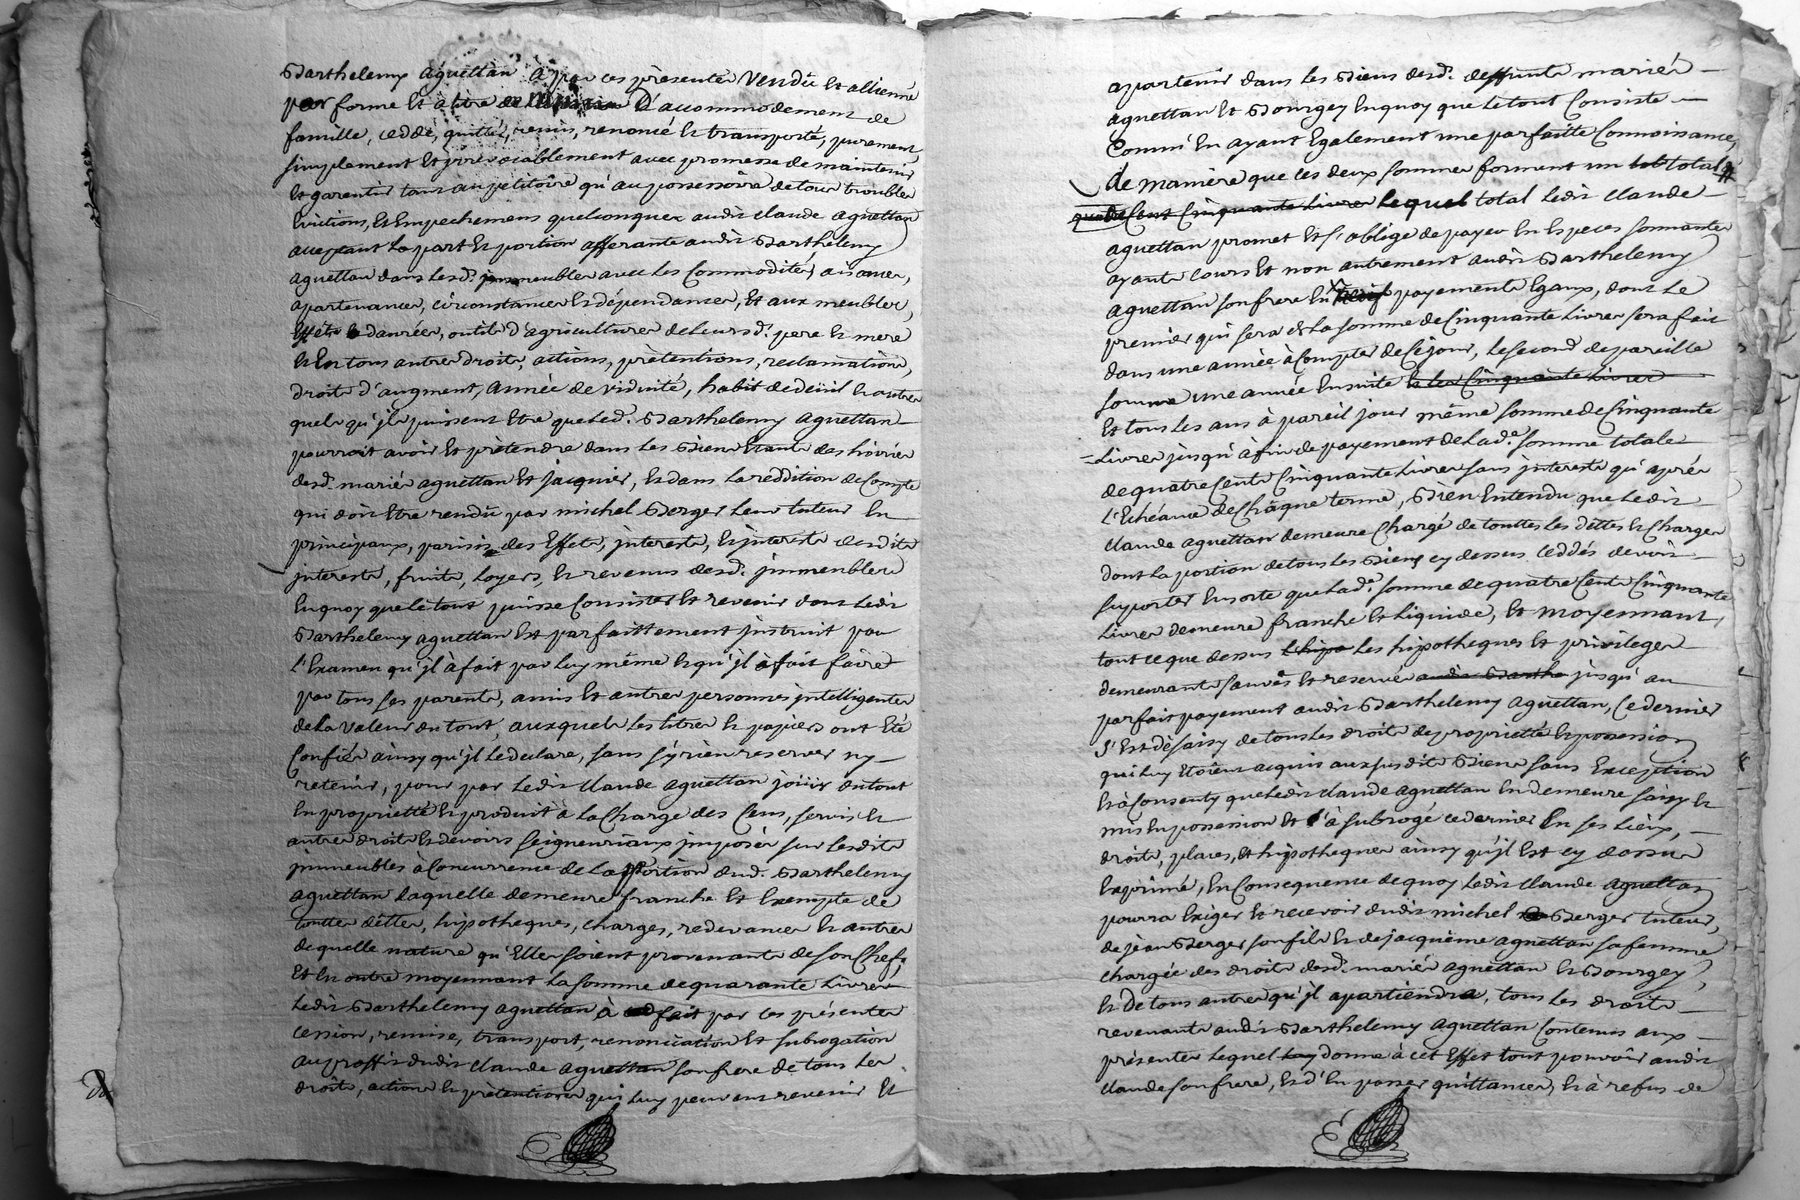 Barthelemy aguettan a par ces présentes vendu et allienné
par forme et à titre de D'accommodement de
famille, ceddé, quitté, remis, renoncé et transporté, purement
simplement et jrrevocablement avec promesse de maintenir
et garentir tant au petitoire qu'au possessoire de tous troubles
Evictions, et Empechemens quelconques audit Claude aguettan
acceptant la part et portion afferante audit Barthelemy
aguettan dans lesd. jmmeubles avec les Commodités, aisances,
apartenances, circonstances et dépendances, et aux meubles,
Effets danrées, outils d'agricultures de leursd. pere et mere
et En tous autres droits, actions, prétentions, reclamations,
droits d'augment, année de viduité, habit de deüil et autres
quels qu'jls puissent Etre que led. Barthelemy aguettan
pourroit avoir et prétendre dans les Biens Etants des hoiries
desd. mariés aguettan et jacquier, et dans la reddition de Compte
qui doit Etre rendu par michel Berger leur tuteur En
principaux, parisis des Effets, jnterests, et jnterests desdits
jnterests, fruits, loyers, et revenus desd. jmmeubles
En quoy que le tout puisse Consister et revenir dont ledit
Barthelemy aguettan Est parfaittement jnstruit par
l'Examen qu'jl à fait par luy même et qu'jl à fait faire
par tous ses parents, amis et autres personnes jntelligentes
de la valeur du tout, auxquels les titres et papiers ont Eté
Confiés ainsy qu'jl le declare, sans s'y rien reserver ny
retenir, pour par ledit Claude aguettan joüir du tout
En proprietté et produit à la Charge des Cens, servis et
autres droits et devoirs seigneuriaux jmposés sur lesdits
jmmeubles à Concurrence de la portion dud. Barthelemy
aguettan laquelle demeure franche et Exempte de
touttes dettes, hipotheques, charges, redevances et autres
de quelle nature qu'Elles soient provenants de son Chef,
et En outre moyennant la somme de quarante Livres
ledit Barthelemy aguettan à fait par ces présentes
cession, remise, transport, renonciation et subrogation
au proffit dudit Claude aguettan son frere de tous les
droits, actions et prétentions qui luy peuvent revenir et
apartenir dans les Biens desd. deffunts mariés
aguettan et Bourgey En quoy que le tout Consiste
Comm' En ayant Egalement une parfaitte Connoissance,
de maniere que ces deux sommes forment un tot total #
quatre Cent Cinquante Livres lequel total ledit Claude
aguettan promet et s'oblige de payer En Especes sonnantes
ayants cours et non autrement audit Barthelemy
aguettan son frere En payements Egaux, dont le
premier qui sera de la somme de Cinquante Livres sera fait
dans une année à Compter de Ce jour, le second de pareille
somme une année Ensuite Cinquante Livres
Et tous les ans à pareil jour même somme de Cinquante
Livres jusqu'à fin de payement de lad.e somme totale
de quatre Cents Cinquante Livres sans jnterests qu'après
l'Echéance de Chaque terme, Bien Entendu que ledit
Claude aguettan demeure Chargé de touttes les dettes et Charges
dont la portion de tous les Biens cy dessus ceddés devoit
suporter En sorte que lad.e somme de quatre Cents Cinquante
Livres demeure franche et liquide, et moyennant
tout ce que dessus les hipotheques et privileges
demeurants sauvés et reservés audit Barthe jusqu'au
parfait payement audit Barthelemy aguettan, Ce dernier
s'Est désaisy de tous les droits de proprietté et possession
qui luy Etoient acquis aux susdits Biens sans Exception
et à Consenty que ledit Claude aguettan En demeure saisy et
mis En possession et à subrogé ce dernier En ses lieux,
droits, places, et hipotheques ainsy qu'jl Est cy dessus
Exprimé, En Consequence de quoy ledit Claude aguettan
pourra Exiger et recevoir dudit michel Berger tuteur,
de jean Berger son fils et de jacquême aguettan sa femme
chargée des droits desd. mariés aguettan et Bourgey
et De tous autres qu'jl apartiendra, tous les droits
revenants audit Barthelemy aguettan Contenus aux
présentes lequel luy donne à cet Effet tout pouvoir audit
Claude son frere, et d'En passer quittances, et à refus de